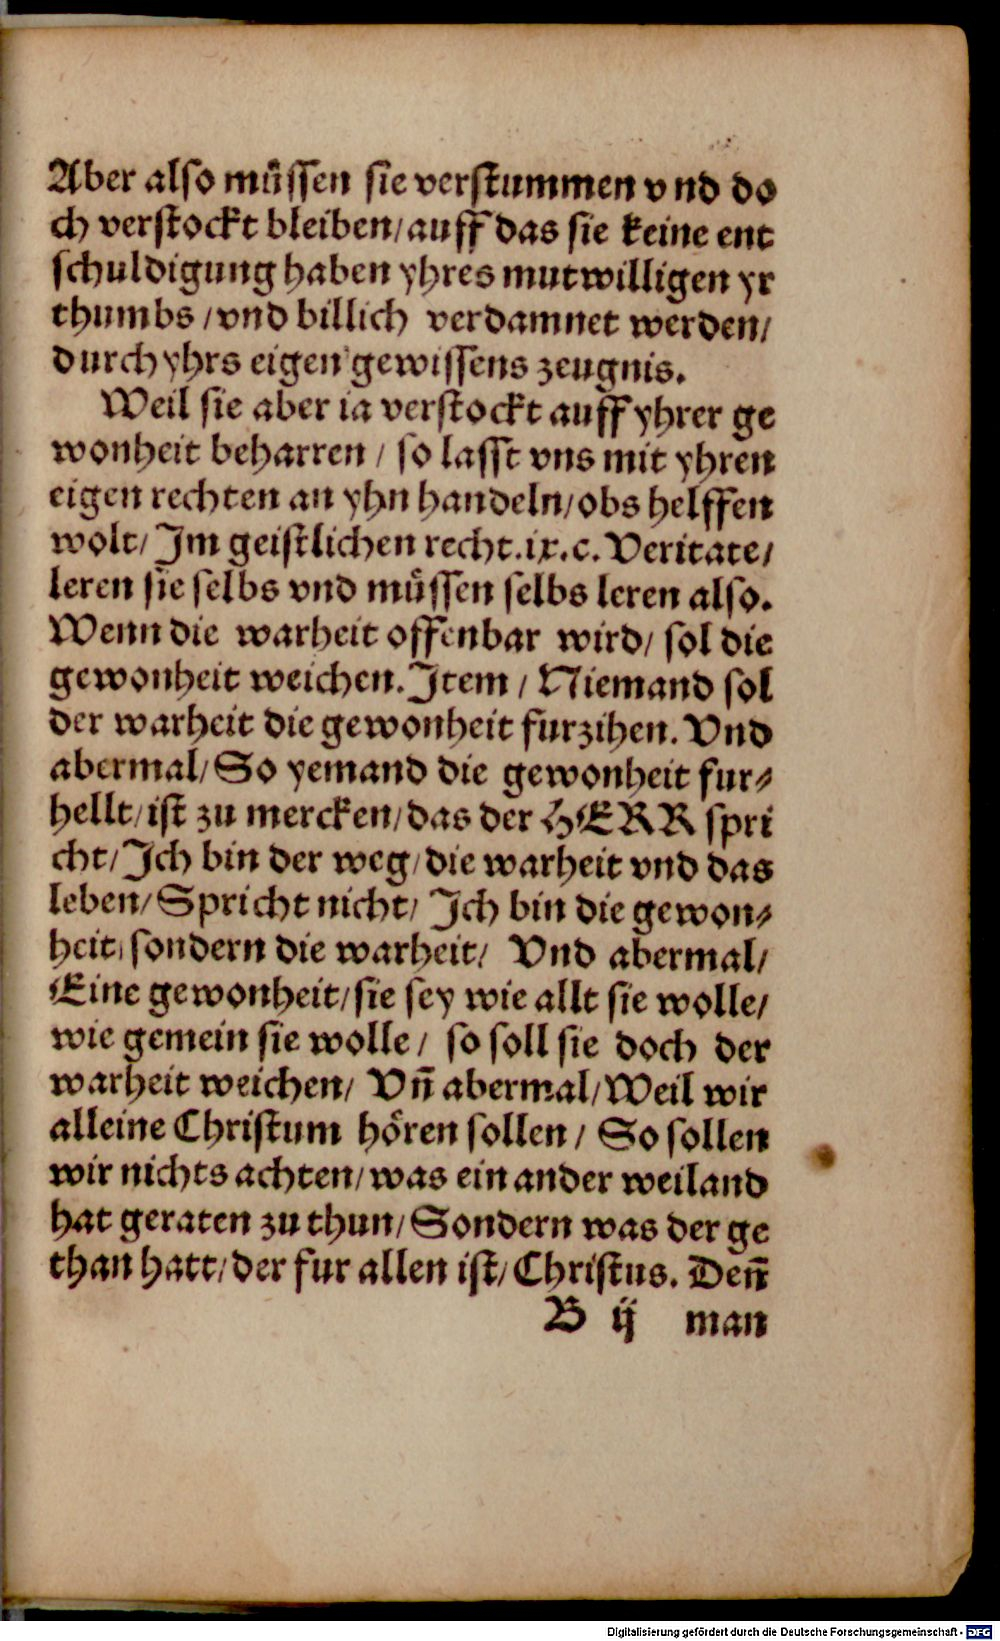 Aber also müssen sie verstummen vnd do
ch verstockt bleiben/auff das sie keine ent
schuldigung haben yhres mutwilligen yr
thumbs/vnd billich verdamnet werden/
durch yhrs eigen gewissens zeugnis.
Weil sie aber ia verstockt auff yhrer ge
wonheit beharren/ so lasst vns mit yhren
eigen rechten an yhn handeln/obs helffen
wolt/Im geistlichen recht.ix.c. Veritate/
leren sie selbs vnd müssen selbs leren also.
Wenn die warheit offenbar wird/ sol die
gewonheit weichen. Item/ Niemand sol
der warheit die gewonheit furzihen. Vnd
abermal/So yemand die gewonheit fur-
hellt/ist zu mercken/das der HERR spri
cht/Ich bin der weg/die warheit vnd das
leben/Spricht nicht/ Ich bin die gewon-
heit/sondern die warheit/ Vnd abermal/
Eine gewonheit/sie sey wie allt sie wolle/
wie gemein sie wolle/ so soll sie doch der
warheit weichen/ Vñ abermal/Weil wir
alleine Christum hören sollen/ So sollen
wir nichts achten/was ein ander weiland
hat geraten zu thun/Sondern was der ge
than hatt/der fur allen ist/Christus. Deñ
B ij man
Digitalisierung gefördert durch die Deutsche Forschungsgemeinschaft - DFG